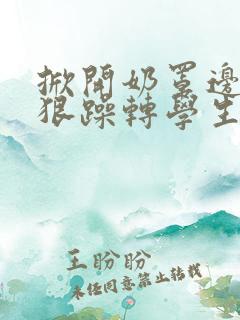 掀開奶罩邊
狠躁轉學生
王盼盼
未任同意禁止转载